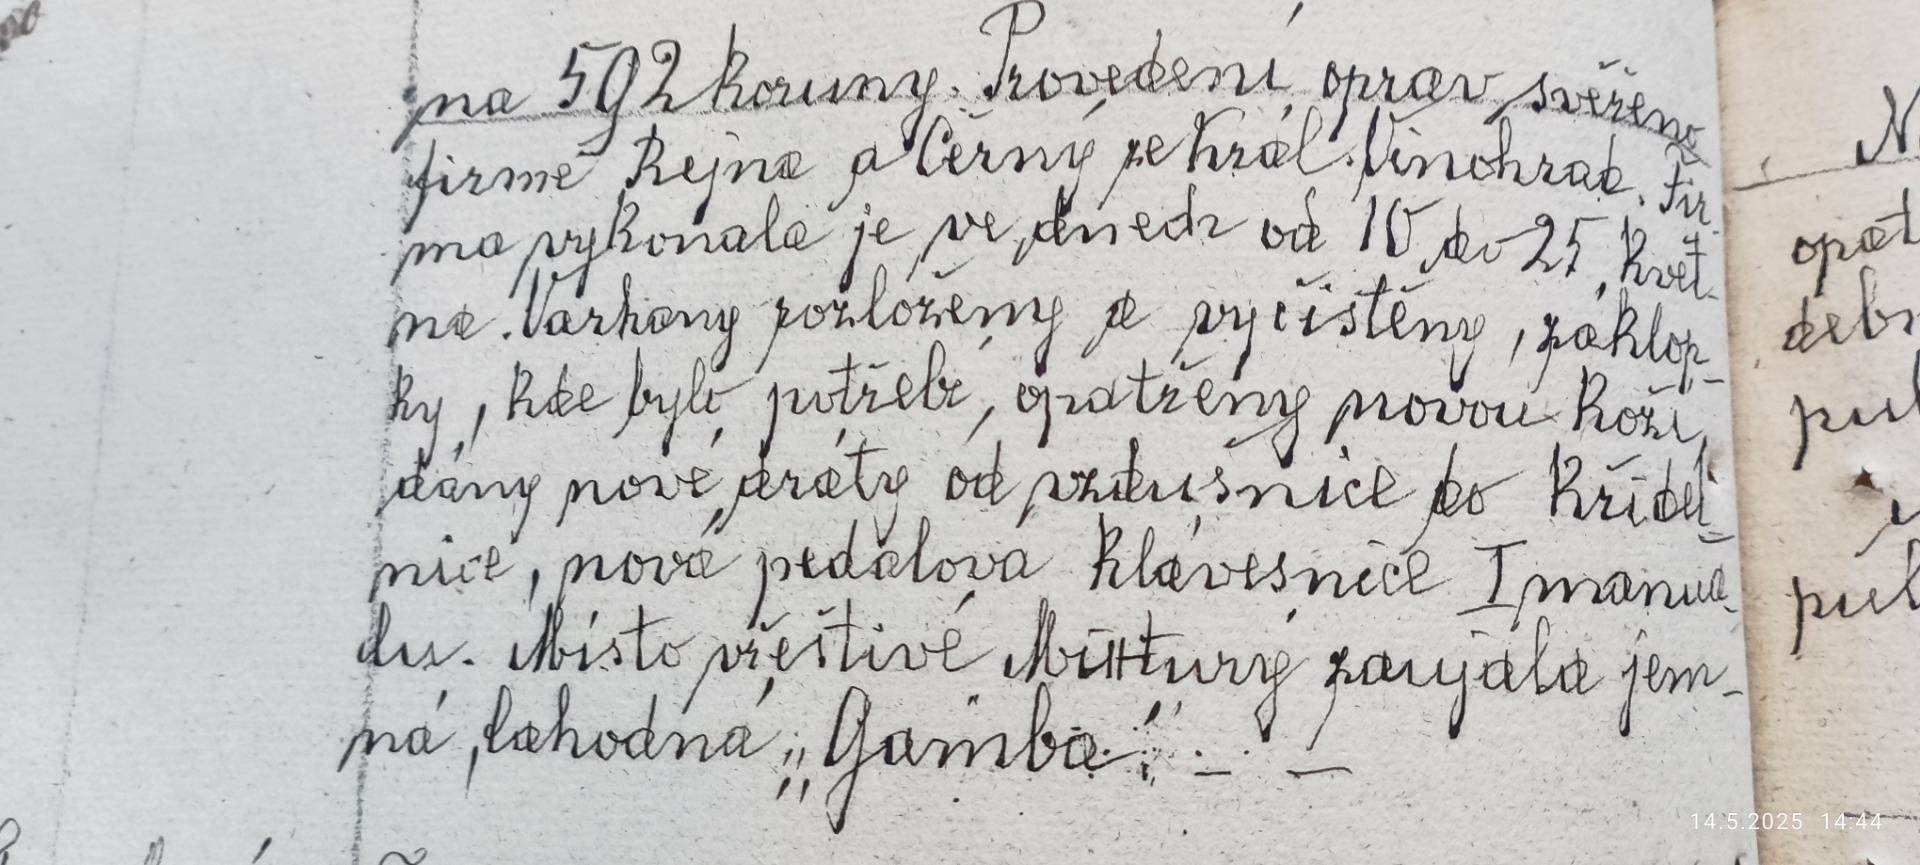 na 592 koruny. Provedení oprav svěřeno
firmě Rejna a Černý ze Král. Vinohrad. Fir-
ma vykonala je ve dnech od 10 do 25 květ-
na. Varhany rozloženy a vyčistěny, záklop-
ky, kde bylo potřebí, opatřeny novou koží,
dány nové dráty od vzdušnice do křídel-
nice, nová pedálová klávesnice I manuá-
lu. Místo vřeštivé Mixtury zaujala jem-
ná, lahodná „Gamba“. – –
opět
debn
14.5.2025 14:44